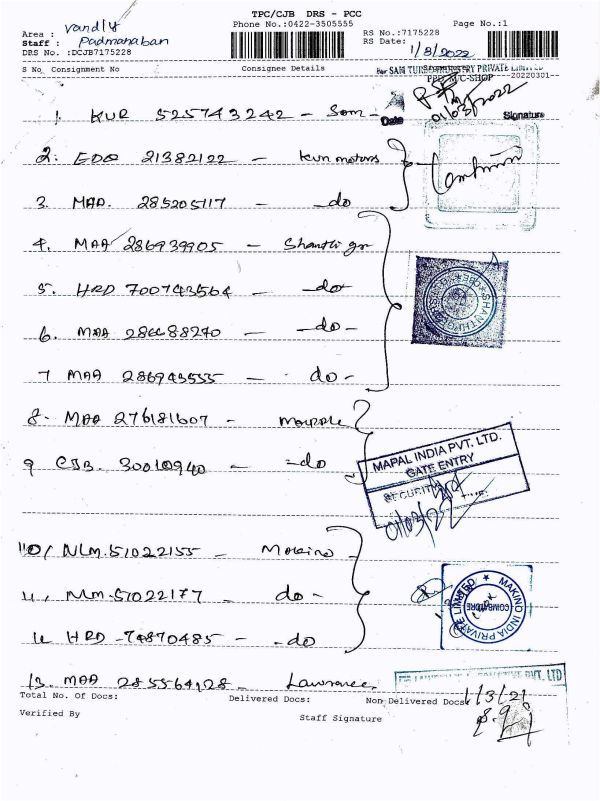 TPC/CJB DRS - PCC
Phone No.:0422-3505555
Page No.:1
Area : Vandly
Staff : Padmanaban
DRS No. :DCJB7175228
RS No.:7175228
RS Date: 1/3/2022
S No Consignment No Consignee Details
For SAM TURBO INDUSTRY PRIVATE LIMITED
20220301
01/03/2022
Date Signature
1. KUR 525743242 - Sam -
2. EDO 21382122 - kun motors
3. MAA. 285205117 - do
4. MAA 286939905 - Shanthi gr
5. HRD 700743564 - do -
6. MAA 286688270 - do -
7 MAA 286943555 - do -
8. MAA 276181607 -
9 CJB. 30010940 - do
MAPAL INDIA PVT. LTD.
GATE ENTRY
SECURITY
01/03/22
10/ NLM.51022155 - Makino
11, NLM.51022177 - do -
12 HRD -74870485 - do
MAKINO INDIA PRIVATE LIMITED
COIMBATORE
13. MAA 285564128 - Lawrence
PVT. LTD
Total No. Of Docs: Delivered Docs: Non Delivered Docs:
1/3/21
Verified By Staff Signature